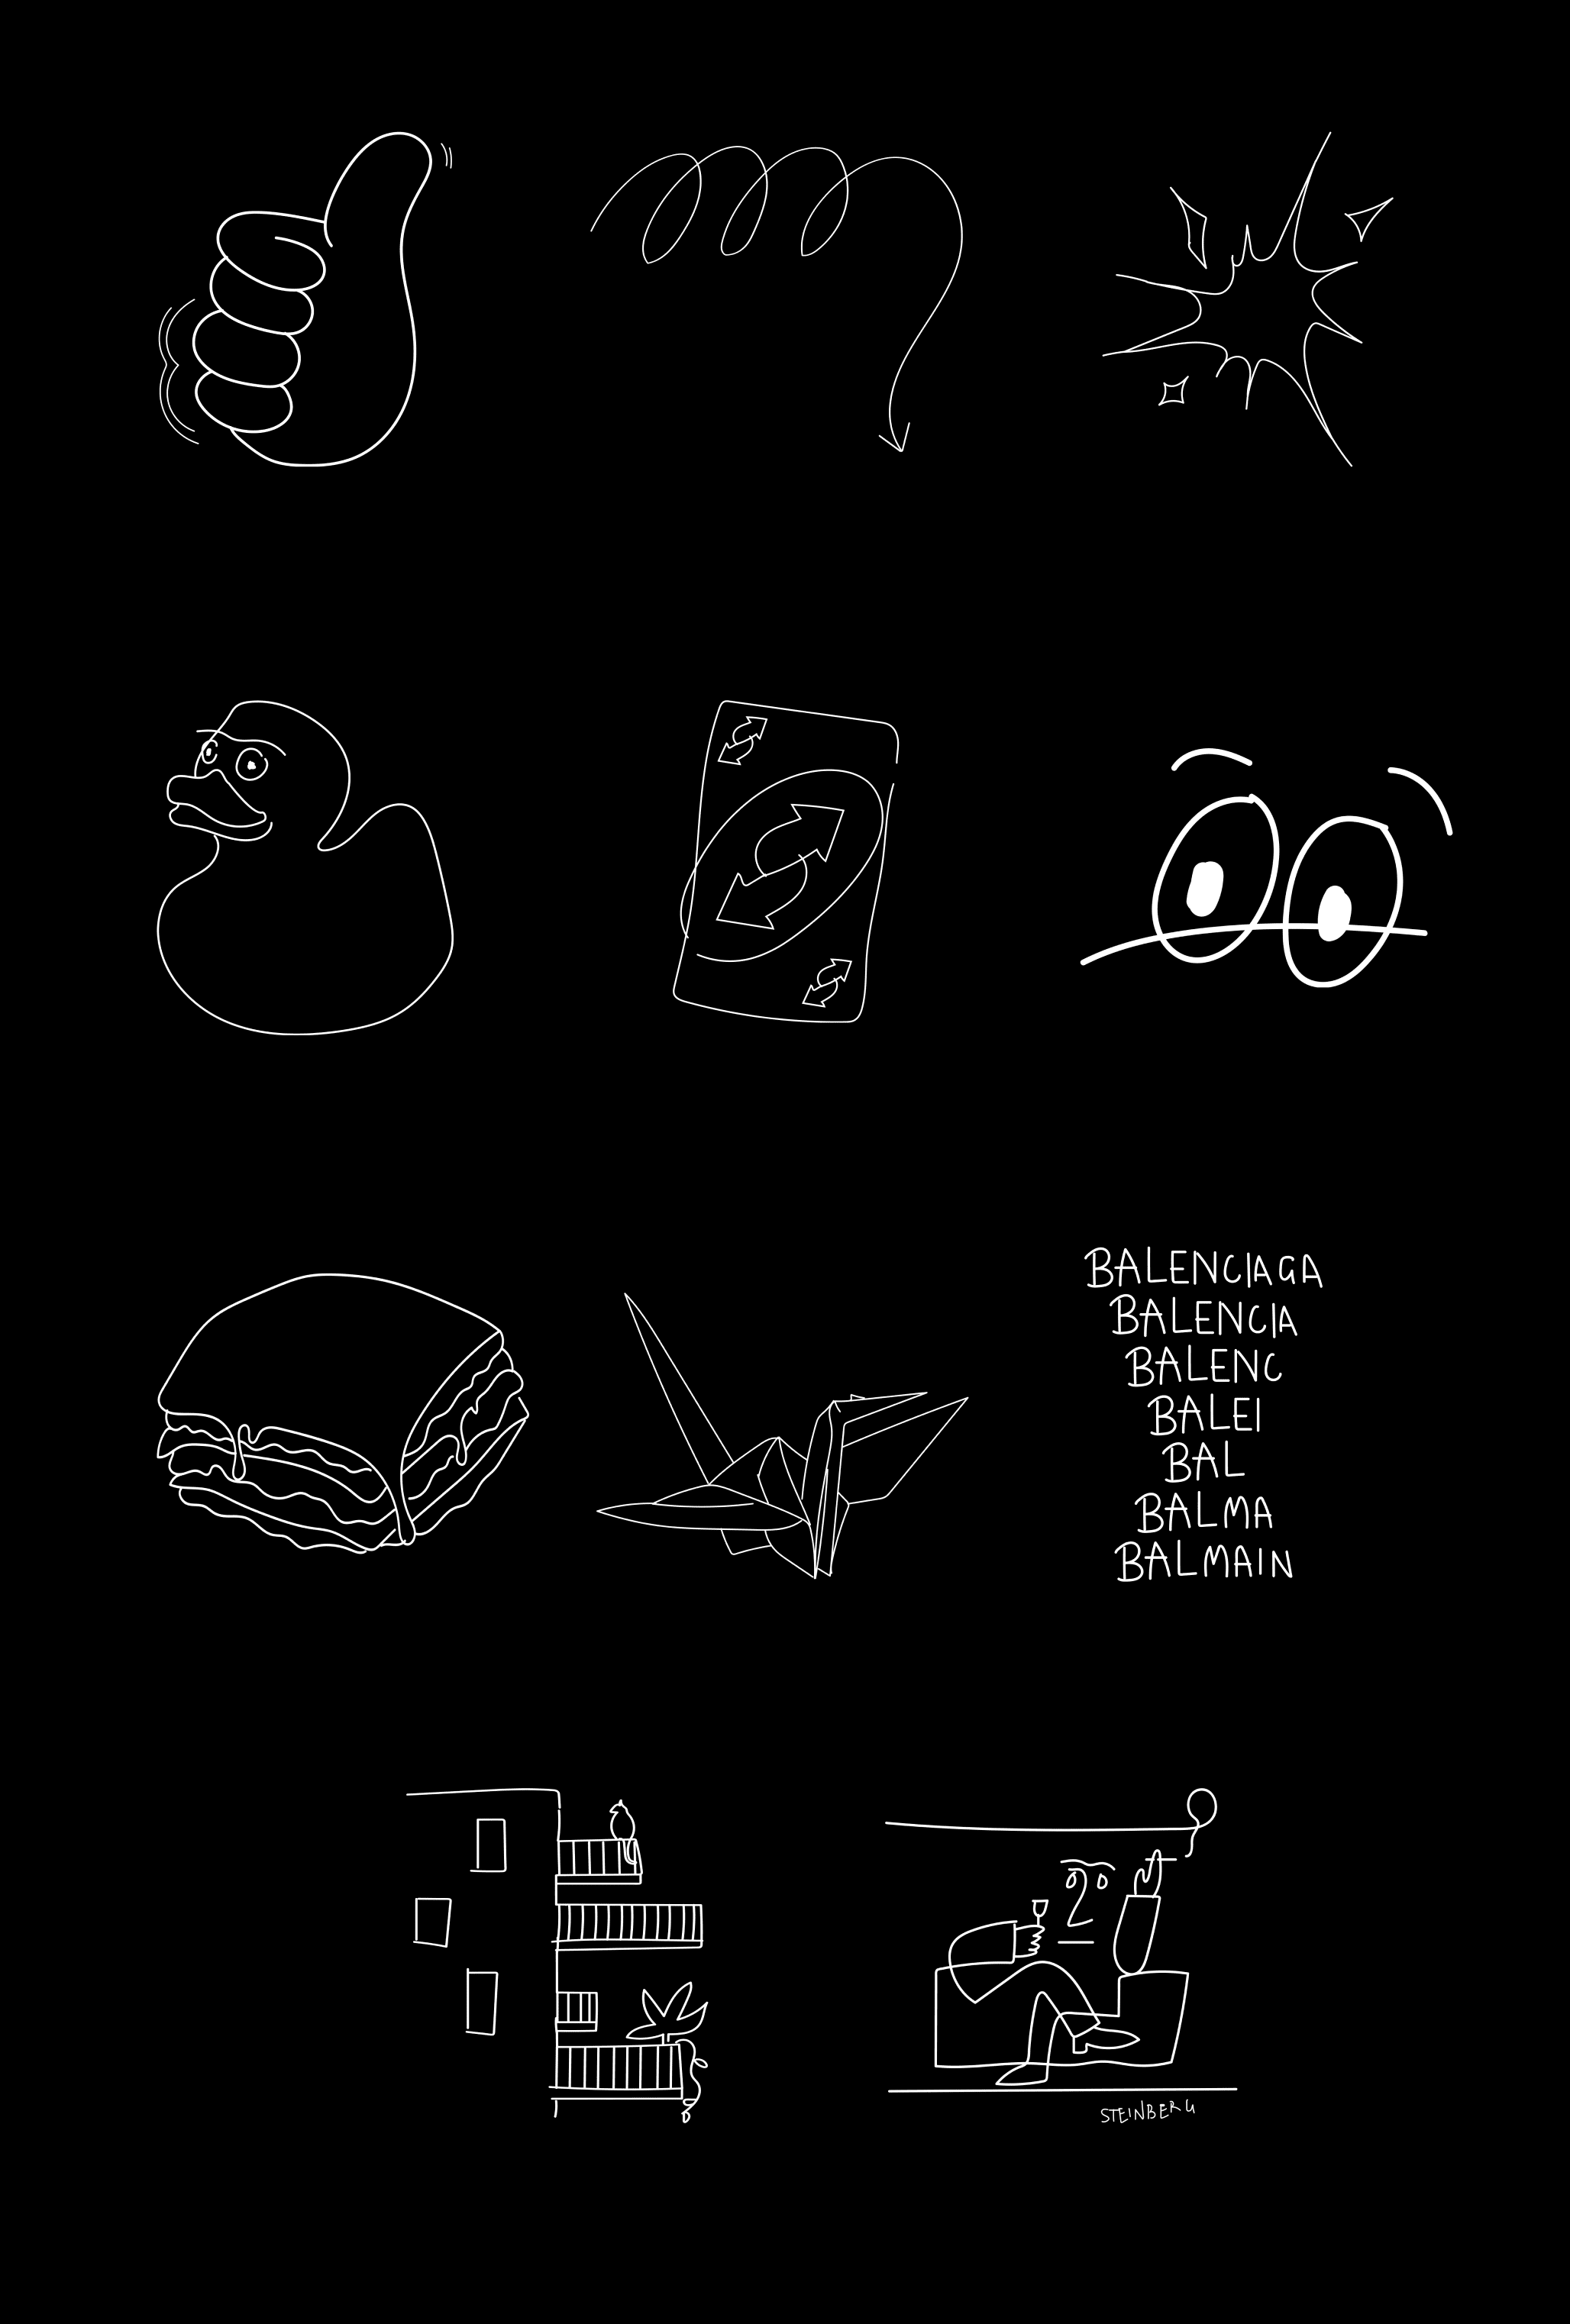 BALENCIAGA
BALENCIA
BALENC
BALEI
BAL
BALMA
BALMAIN
STEINBERG